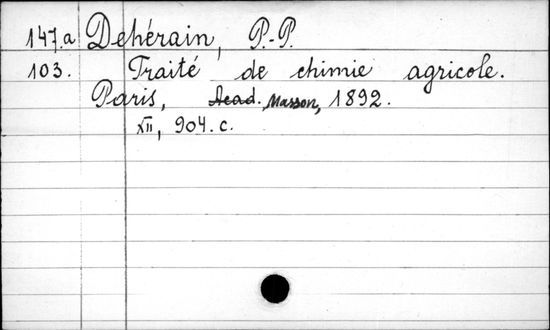 147.a Dehérain, P.-P.
103. Traité de chimie agricole.
Paris, Acad. Masson, 1892.
XII, 904. c.